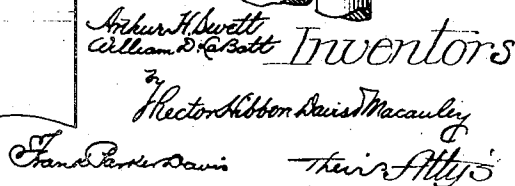 Arthur H. Swett
William D. LaBatt Inventors
by
Rector Hibben Davis & Macauley
Frank Parker Davis Their Att'ys